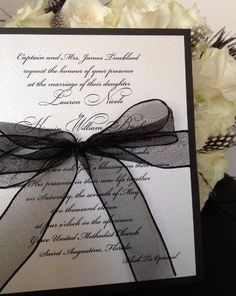 Captain and Mrs. James Trueblood
request the honour of your presence
at the marriage of their daughter
Lauren Nicole
to
William
God's blessing on their
and His presence in their new life together
on Saturday, the seventh of May
two thousand
o'clock in the afternoon
Grace United Methodist Church
Saint Augustine, Florida
Black Tie Optional